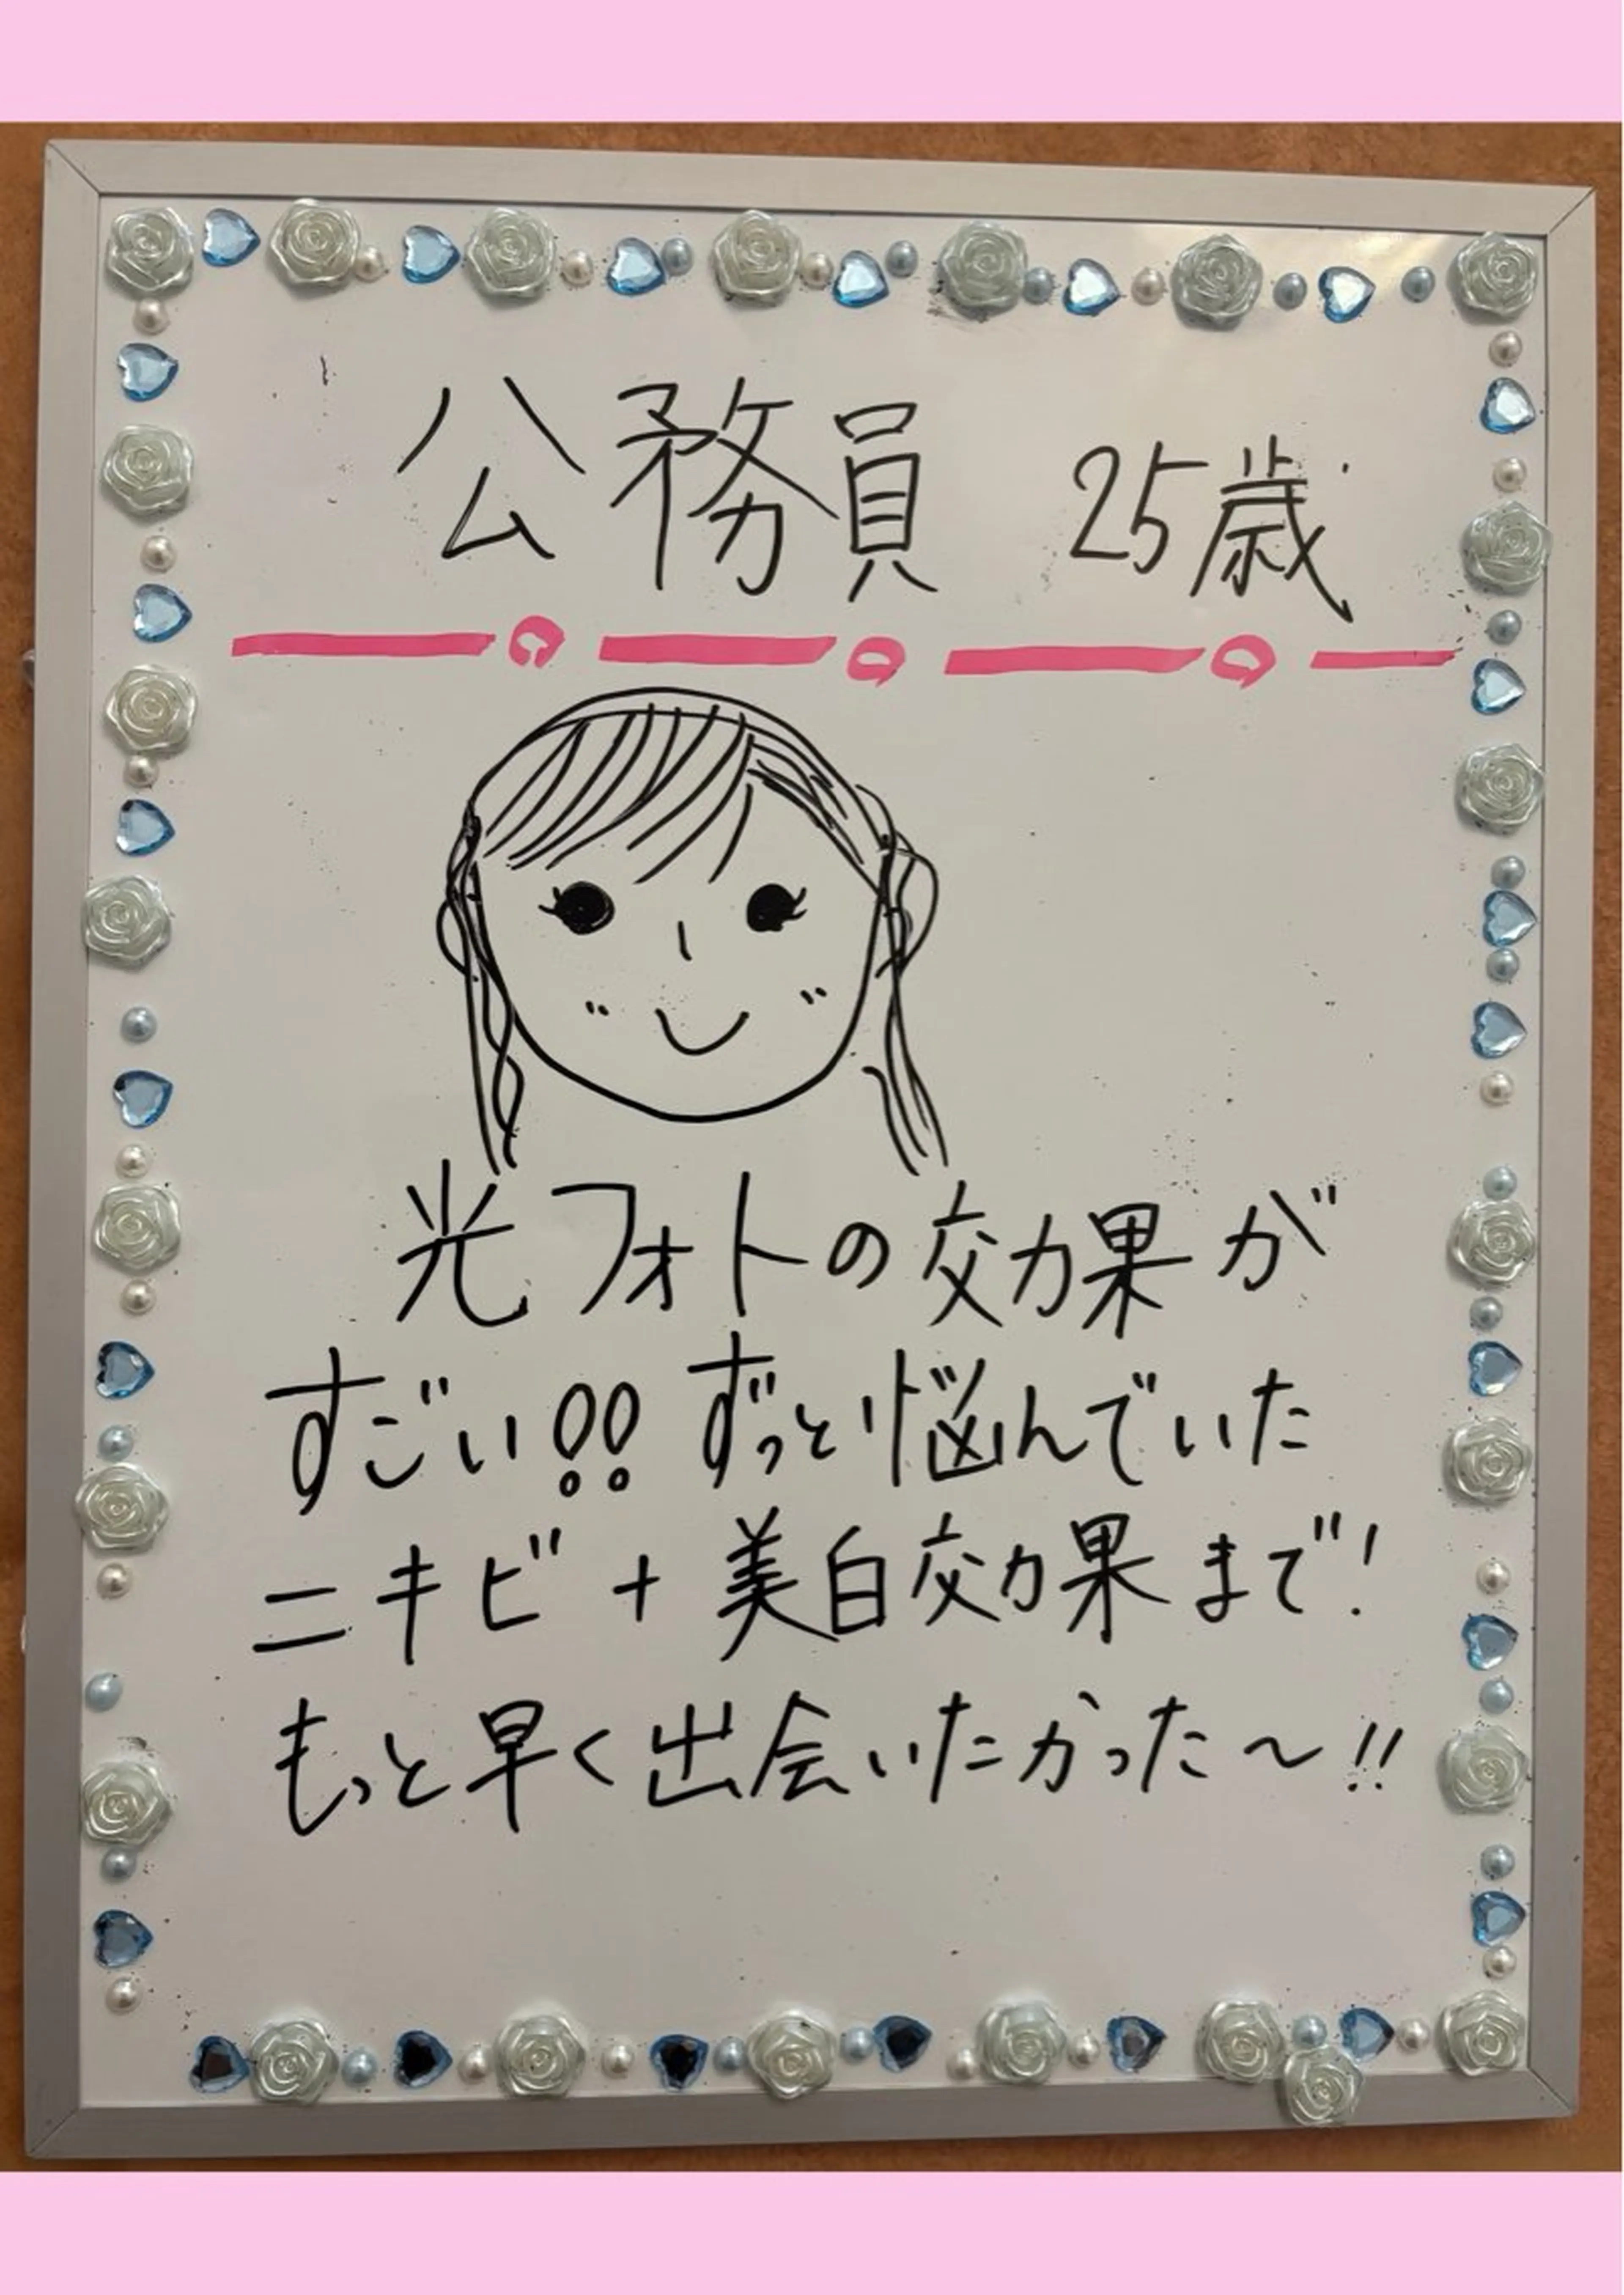 公務員 25歳
光フォトの効果が
すごい!! ずっと悩んでいた
ニキビ+美白効果まで!
もっと早く出会いたかった〜!!